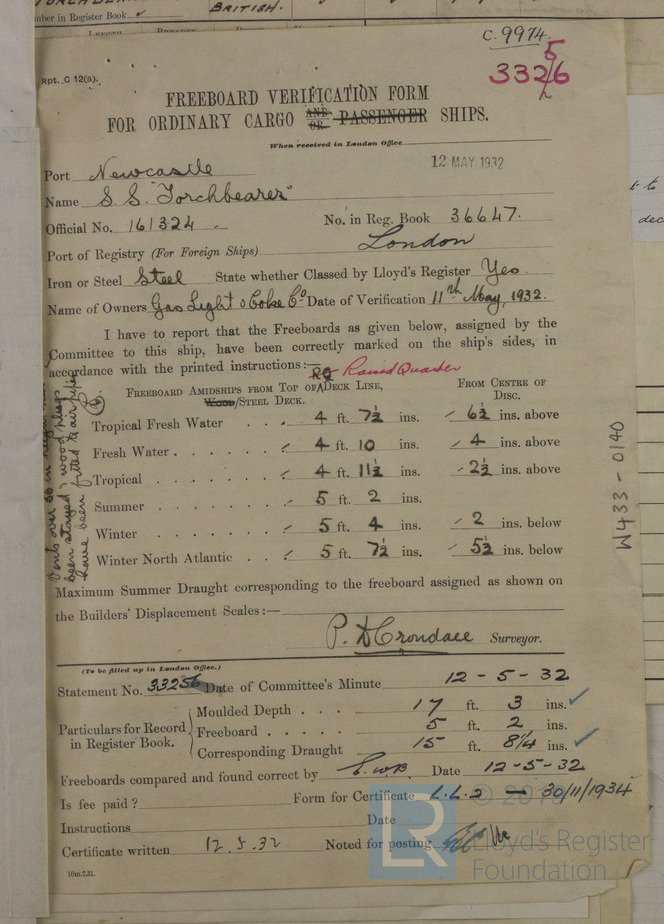 BRITISH.
Number in Register Book
C. 9974
Rpt. C 12(a).
5
3326
FREEBOARD VERIFICATION FORM
FOR ORDINARY CARGO AND OR PASSENGER SHIPS.
When received in London Office
12 MAY 1932
Port Newcastle
Name S.S. "Torchbearer"
Official No. 161324 No. in Reg. Book 36647.
Port of Registry (For Foreign Ships) London
Iron or Steel Steel State whether Classed by Lloyd's Register Yes
Name of Owners Gas Light & Coke Co Date of Verification 11th May, 1932.
I have to report that the Freeboards as given below, assigned by the
Committee to this ship, have been correctly marked on the ship's sides, in
accordance with the printed instructions:—
RQ Raised Quarter
FREEBOARD AMIDSHIPS FROM TOP OF DECK LINE, FROM CENTRE OF
WOOD/STEEL DECK. DISC.
Tropical Fresh Water 4 ft. 7½ ins. 6½ ins. above
Fresh Water 4 ft. 10 ins. 4 ins. above
Tropical 4 ft. 11½ ins. 2½ ins. above
Summer 5 ft. 2 ins.
Winter 5 ft. 4 ins. 2 ins. below
Winter North Atlantic 5 ft. 7½ ins. 5½ ins. below
been stayed & wood plugs
have been fitted to air pipes
W433-0140
Maximum Summer Draught corresponding to the freeboard assigned as shown on
the Builders' Displacement Scales:—
Surveyor.
(To be filled up in London Office.)
Statement No. 33256 Date of Committee's Minute 12-5-32
Particulars for Record in Register Book.
Moulded Depth 17 ft. 3 ins.
Freeboard 5 ft. 2 ins.
Corresponding Draught 15 ft. 8¼ ins.
Freeboards compared and found correct by E.W.B. Date 12-5-32
Is fee paid? Form for Certificate L.L.2 — 30/11/1934
Instructions Date
Certificate written 12.5.32 Noted for posting
10m.7.31.
LR
Lloyd's Register
Foundation